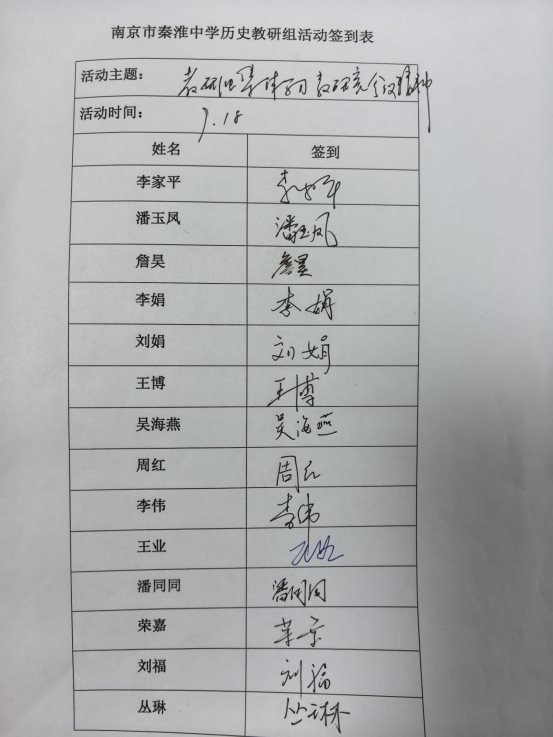 南京市秦淮中学历史教研组活动签到表
活动主题： 教研组集体学习教研究会议精神
活动时间： 9.18
姓名 签到
李家平 李家平
潘玉凤 潘玉凤
詹昊 詹昊
李娟 李娟
刘娟 刘娟
王博 王博
吴海燕 吴海燕
周红 周红
李伟 李伟
王业
潘同同 潘同同
荣嘉
刘福 刘福
丛琳 丛琳